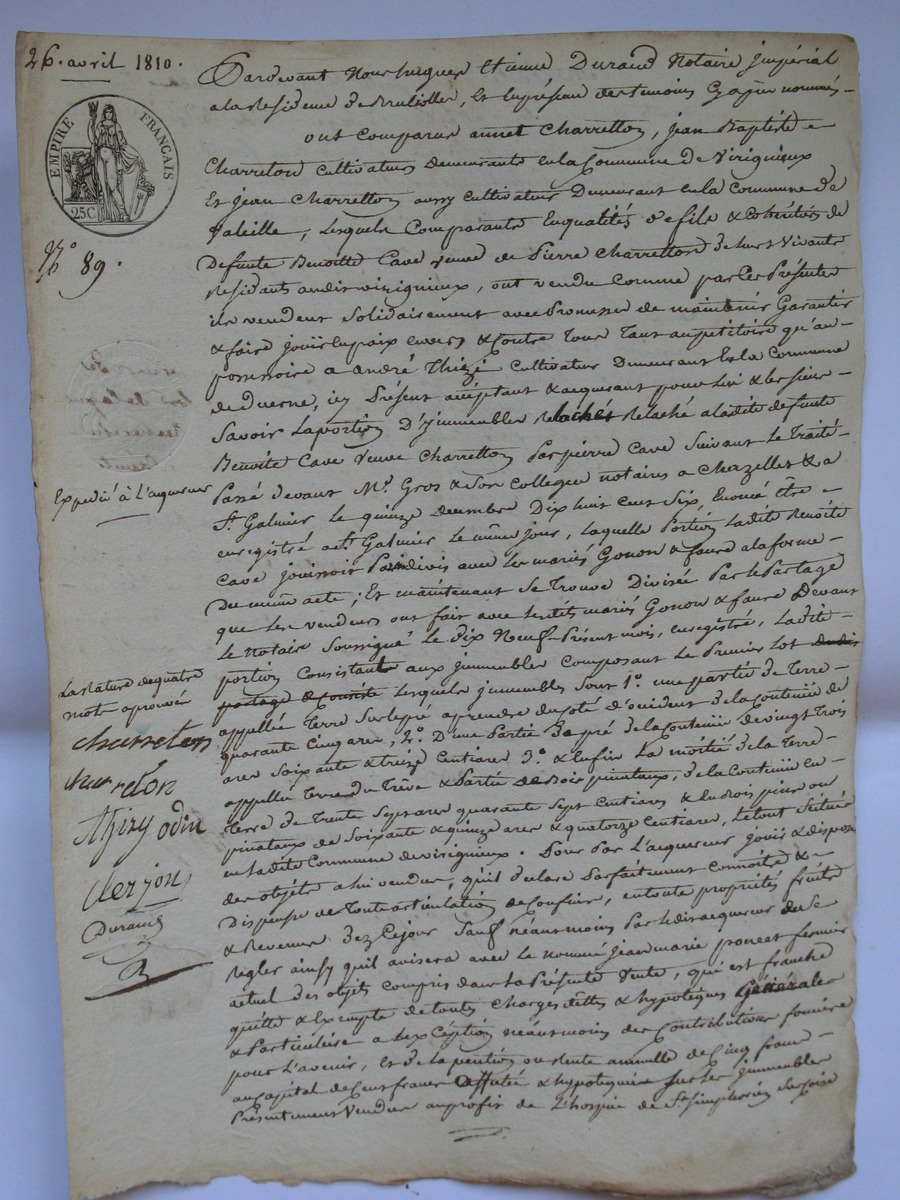 26. avril 1810.
EMPIRE FRANÇAIS
25C.
N° 89.
Expedié à l'aquereur
La rature de quatre
mots aprouvée
charreton
charreton
thizy odin
Clerjon
Durand
Pardevant Nous Etienne Durand Notaire jmpérial
a la Residence de Brullioller, et en présence des temoins cy après nommés -
ont comparus annet Charretton, jean Baptiste
Charreton Cultivateurs demeurants en la Commune de Virignieux
Et jean Charretton aussy Cultivateur Demeurant en la Commune de
Valeille, Lesquels Comparants En qualités de fils & Cohéritiers de
Defunte Benoitte Cave veuve de Pierre Charretton de leurs Vivants
Residants audit virignieux, ont vendu Comme par Ces Présentes
ils vendent Solidairement avec Promesse de maintenir Garantir
& faire jouir en paix envers & Contre tous tant au petitoire qu'au
possessoire a andré Thizi Cultivateur Demeurant En la Commune
de Duerne, icy Présent acceptant & acquerant pour lui & les siens
Savoir La portion D'jmmeubles Relaché a ladite defunte
Benoite Cave Veuve Charretton Par pierre Cave Suivant Le Traité
Passé devant Mr. Gros & Son Collegue notaires a Chazelles & a
St. Galmier Le quinze decembre Dix huit Cent Six, Enoncé être
enregistré a St. Galmier Le même jour, Laquelle Portion Ladite Benoite
Cave jouissoit Par indivis avec les mariés Gonon & faure a la forme
Du même acte; Et maintenant Se Trouve Divisée Par le Partage
que Les vendeurs ont fait avec lesdits mariés Gonon & faure Devant
Le notaire Soussigné Le dix Neuf Présent mois, enregistré, Ladite
portion Consistante aux jmmeubles Composant Le Premier Lot
partage Lesquels jmmeubles Sont 1°. une partie de Terre
appellée Terre Sur Le pré a prendre du Coté d'occident de la Contenue de
quarante Cinq ares, 2°. D'une Partie de pré de la Contenue de vingt Trois
ares Soixante & treize Centiares 3°. & Enfin La moitié de la Terre
appellée Terre du Trêve & Partie de Bois pinateaux, de la Contenue en
Terre de Trente Sept ares quarante Sept Centiares & en Bois pins ou
pinateaux de Soixante & quinze ares & quatorze Centiares, Le tout Scitué
en Ladite Commune de virignieux. Pour Par L'acquereur jouir & disposer
des objets a lui vendus, qu'il declare Parfaitement Connoitre &
Dispense de Toute articulation de Confins, en toute propriétés fruits
& Revenus Dez Cejour Sauf néanmoins Par ledit acquereur de Se
Regler ainsy qu'il avisera avec Le nommé jean marie poncet fermier
actuel des objets Compris dans la Présente Vente, qui est franche
quitte & Exempte de toutes Charges dettes & hypoteques Générales
& Particulière a L'exception néanmoins des Contributions foncière
pour L'avenir, Et de la pention ou Rente annuelle de Cinq francs
au Capital de Cent francs affectée & hypotequée Sur Les jmmeubles
Présentement Vendus au profit de L'hospice de St. Simphorien